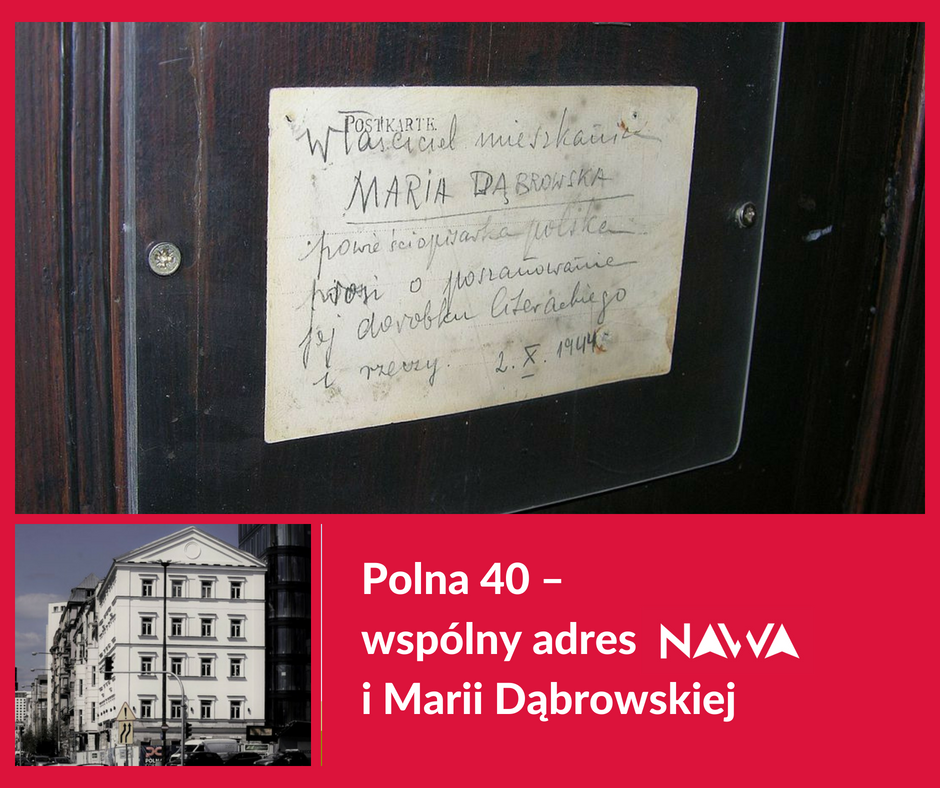 POSTKARTE
Właściciel mieszkania
MARIA DĄBROWSKA
powieściopisarka polska
prosi o poszanowanie
jej dorobku literackiego
i rzeczy. 2. X. 1944
Polna 40 –
wspólny adres NAWA
i Marii Dąbrowskiej